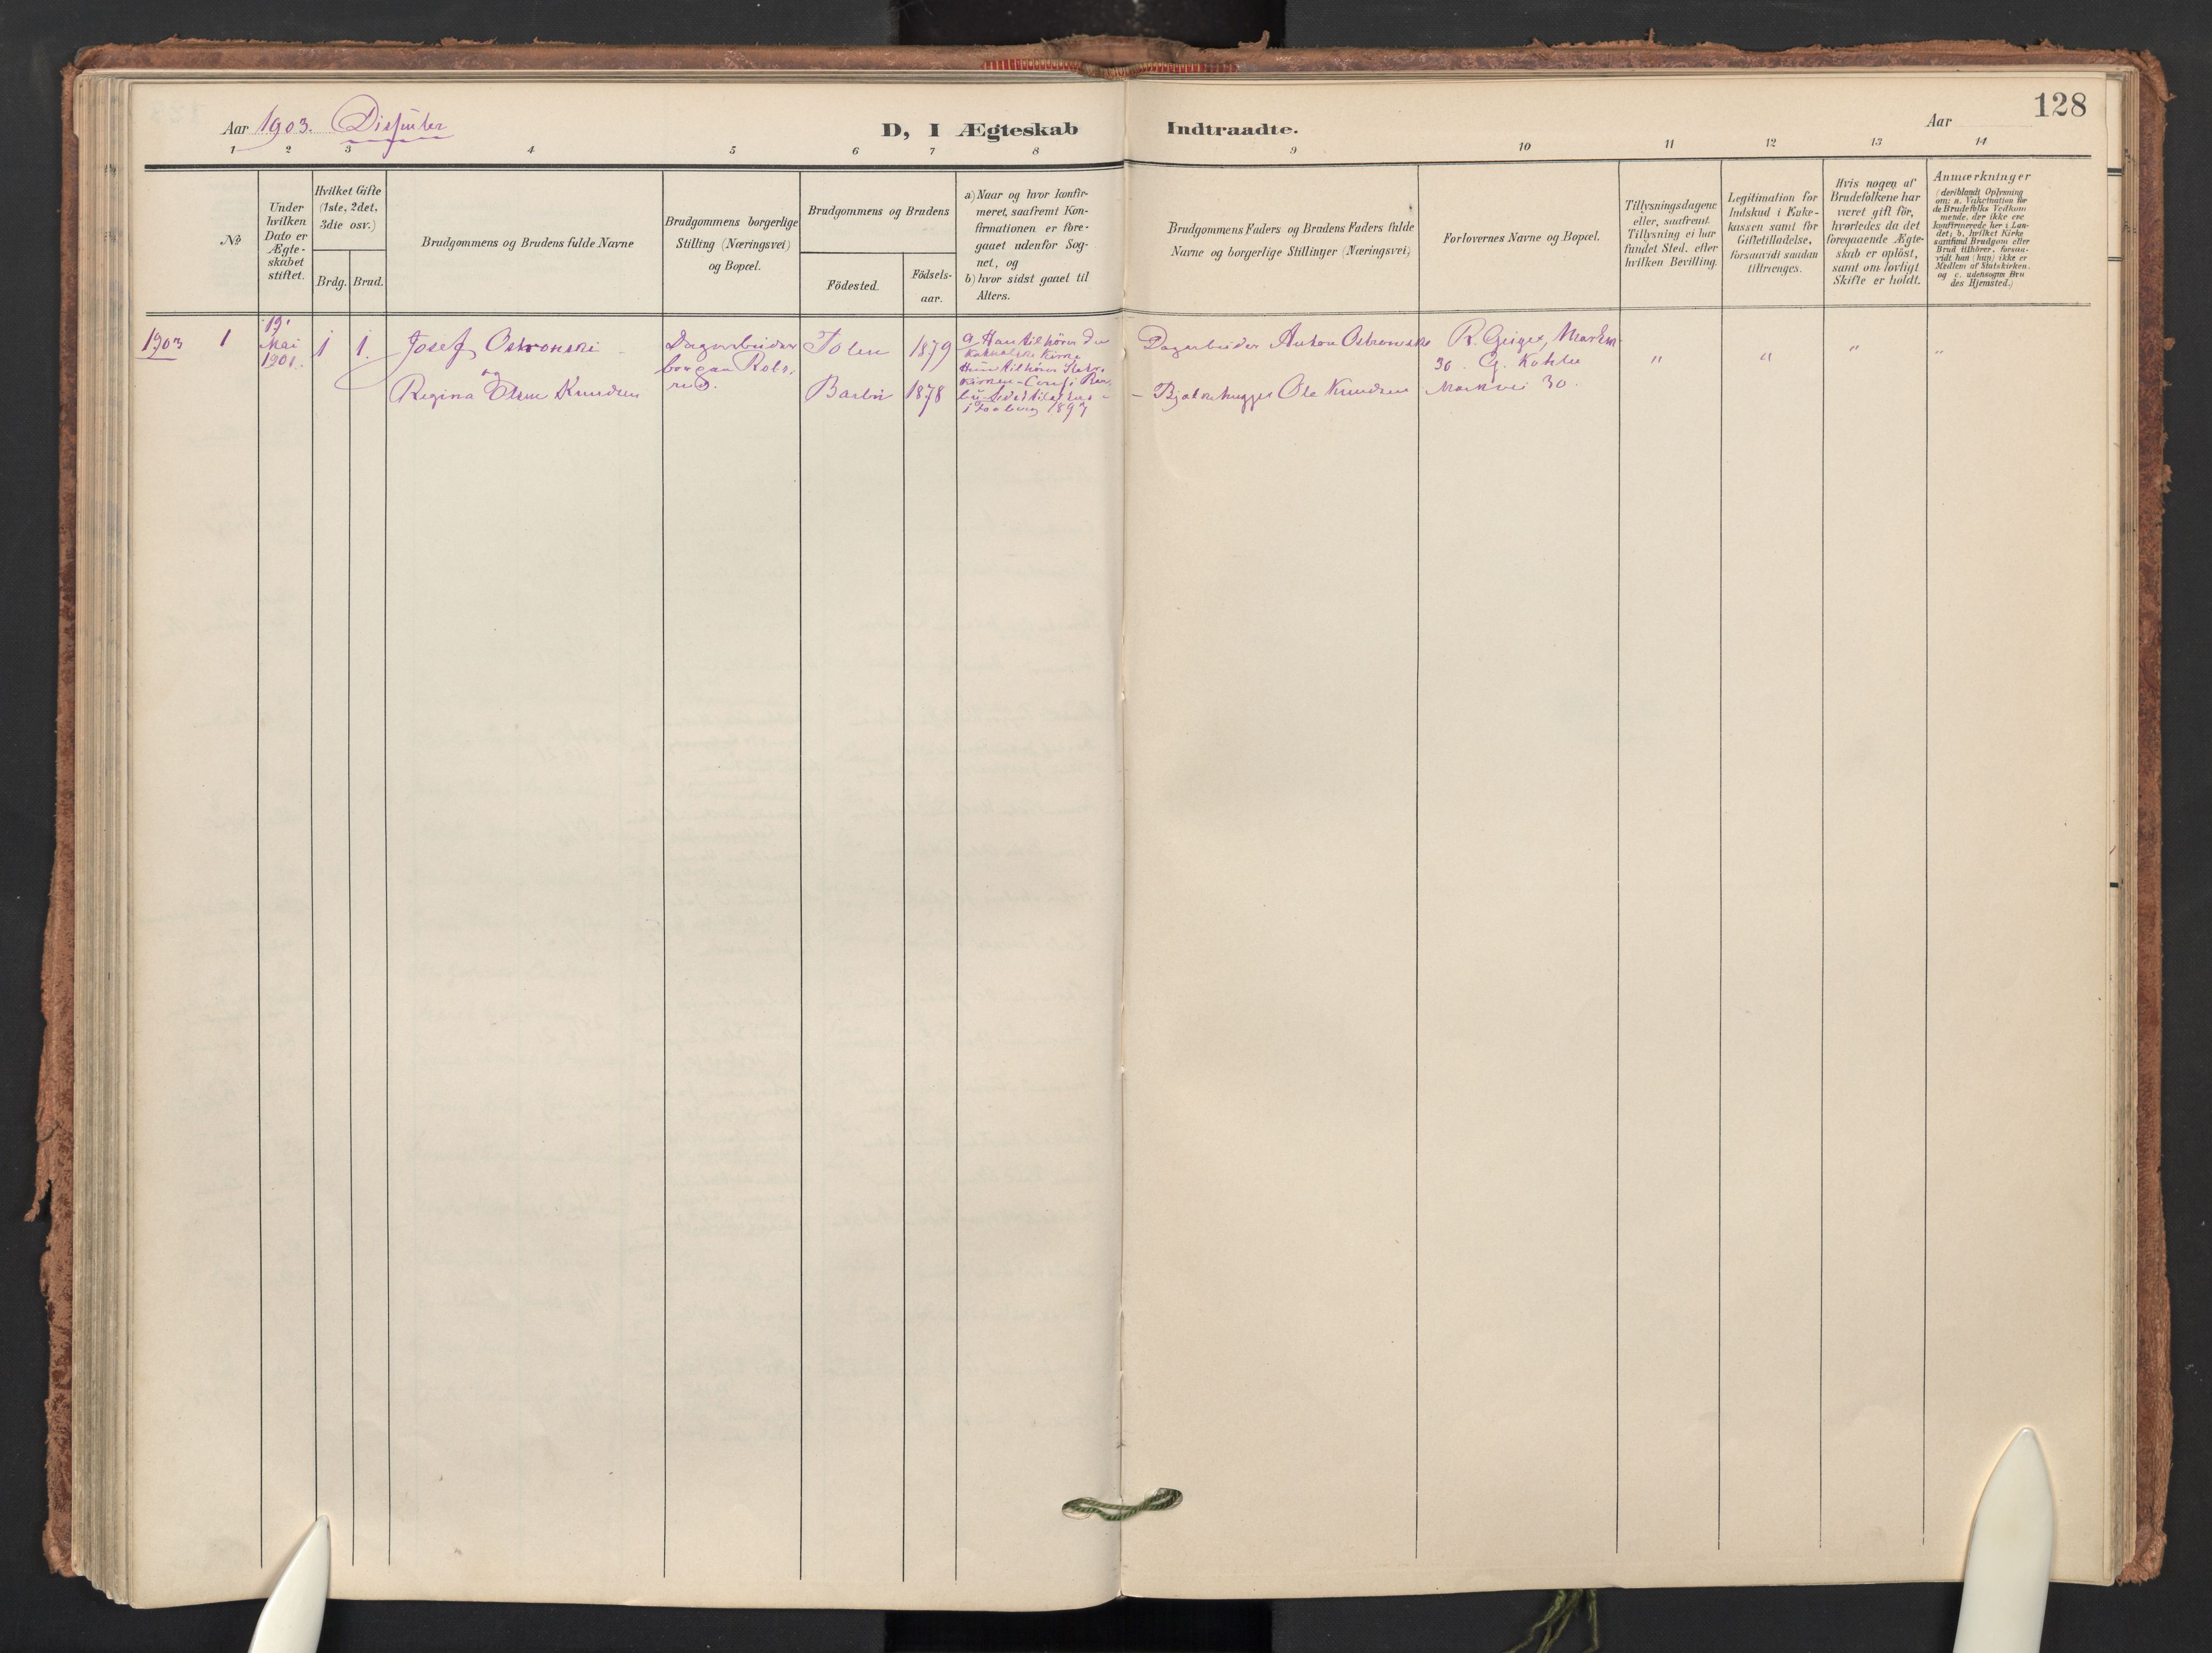 128
Aar 1903. Dissenter
D, I Ægteskab Indtraadte.
Aar
1 2 3 4 5 6 7 8 9 10 11 12 13 14
No
Under
hvilken
Dato er
Ægte-
skabet
stiftet.
Hvilket Gifte
(1ste, 2det,
3die osv.)
Brdg. Brud.
Brudgommens og Brudens fulde Navne
Brudgommens borgerlige
Stilling (Næringsvei)
og Bopæl.
Brudgommens og Brudens
Födested.
Födsels-
aar.
a) Naar og hvor konfir-
meret, saafremt Kon-
firmationen er fore-
gaaet udenfor Sog-
net, og
b) hvor sidst gaaet til
Alters.
Brudgommens Faders og Brudens Faders fulde
Navne og borgerlige Stillinger (Næringsvei)
Forlovernes Navne og Bopæl.
Tillysningsdagene
eller, saafremt
Tillysning ei har
fundet Sted, efter
hvilken Bevilling.
Legitimation for
Indskud i Enke-
kassen samt for
Giftetilladelse,
forsaavidt saadan
tiltrænges.
Hvis nogen af
Brudefolkene har
været gift för,
hvorledes da det
foregaaende Ægte-
skab er oplöst,
samt om lovligt
Skifte er holdt.
Anmærkninger
(deriblandt Oplysning
om: a. Vakcination for
de Brudefolks Vedkom
mende, der ikke ere
konfirmerede her i Lan-
det; b, hvilket Kirke
samfund Brudgom eller
Brud tilhörer, forsaa-
vidt han (hun) ikke er
Medlem af Statskirken.
og c. udensogns Bru
des Hjemsted.)
1903 1
19'
Mai
1901.
1 1.
Josef Ostronski
og
Regina Elene Knudsen
Dagarbeider
Polen 1879
Barbu 1878
a, Han tilhörer den
katholske Kirke
Hun tilhörer Stats-
kirken - Conf i Bar-
bu
1893
Dagarbeider Anton Ostronski
- Bjælkehugger Ole Knudsen
R. Geiger, Markv.
30. G. Kohler
Markvei 30.
" " " "